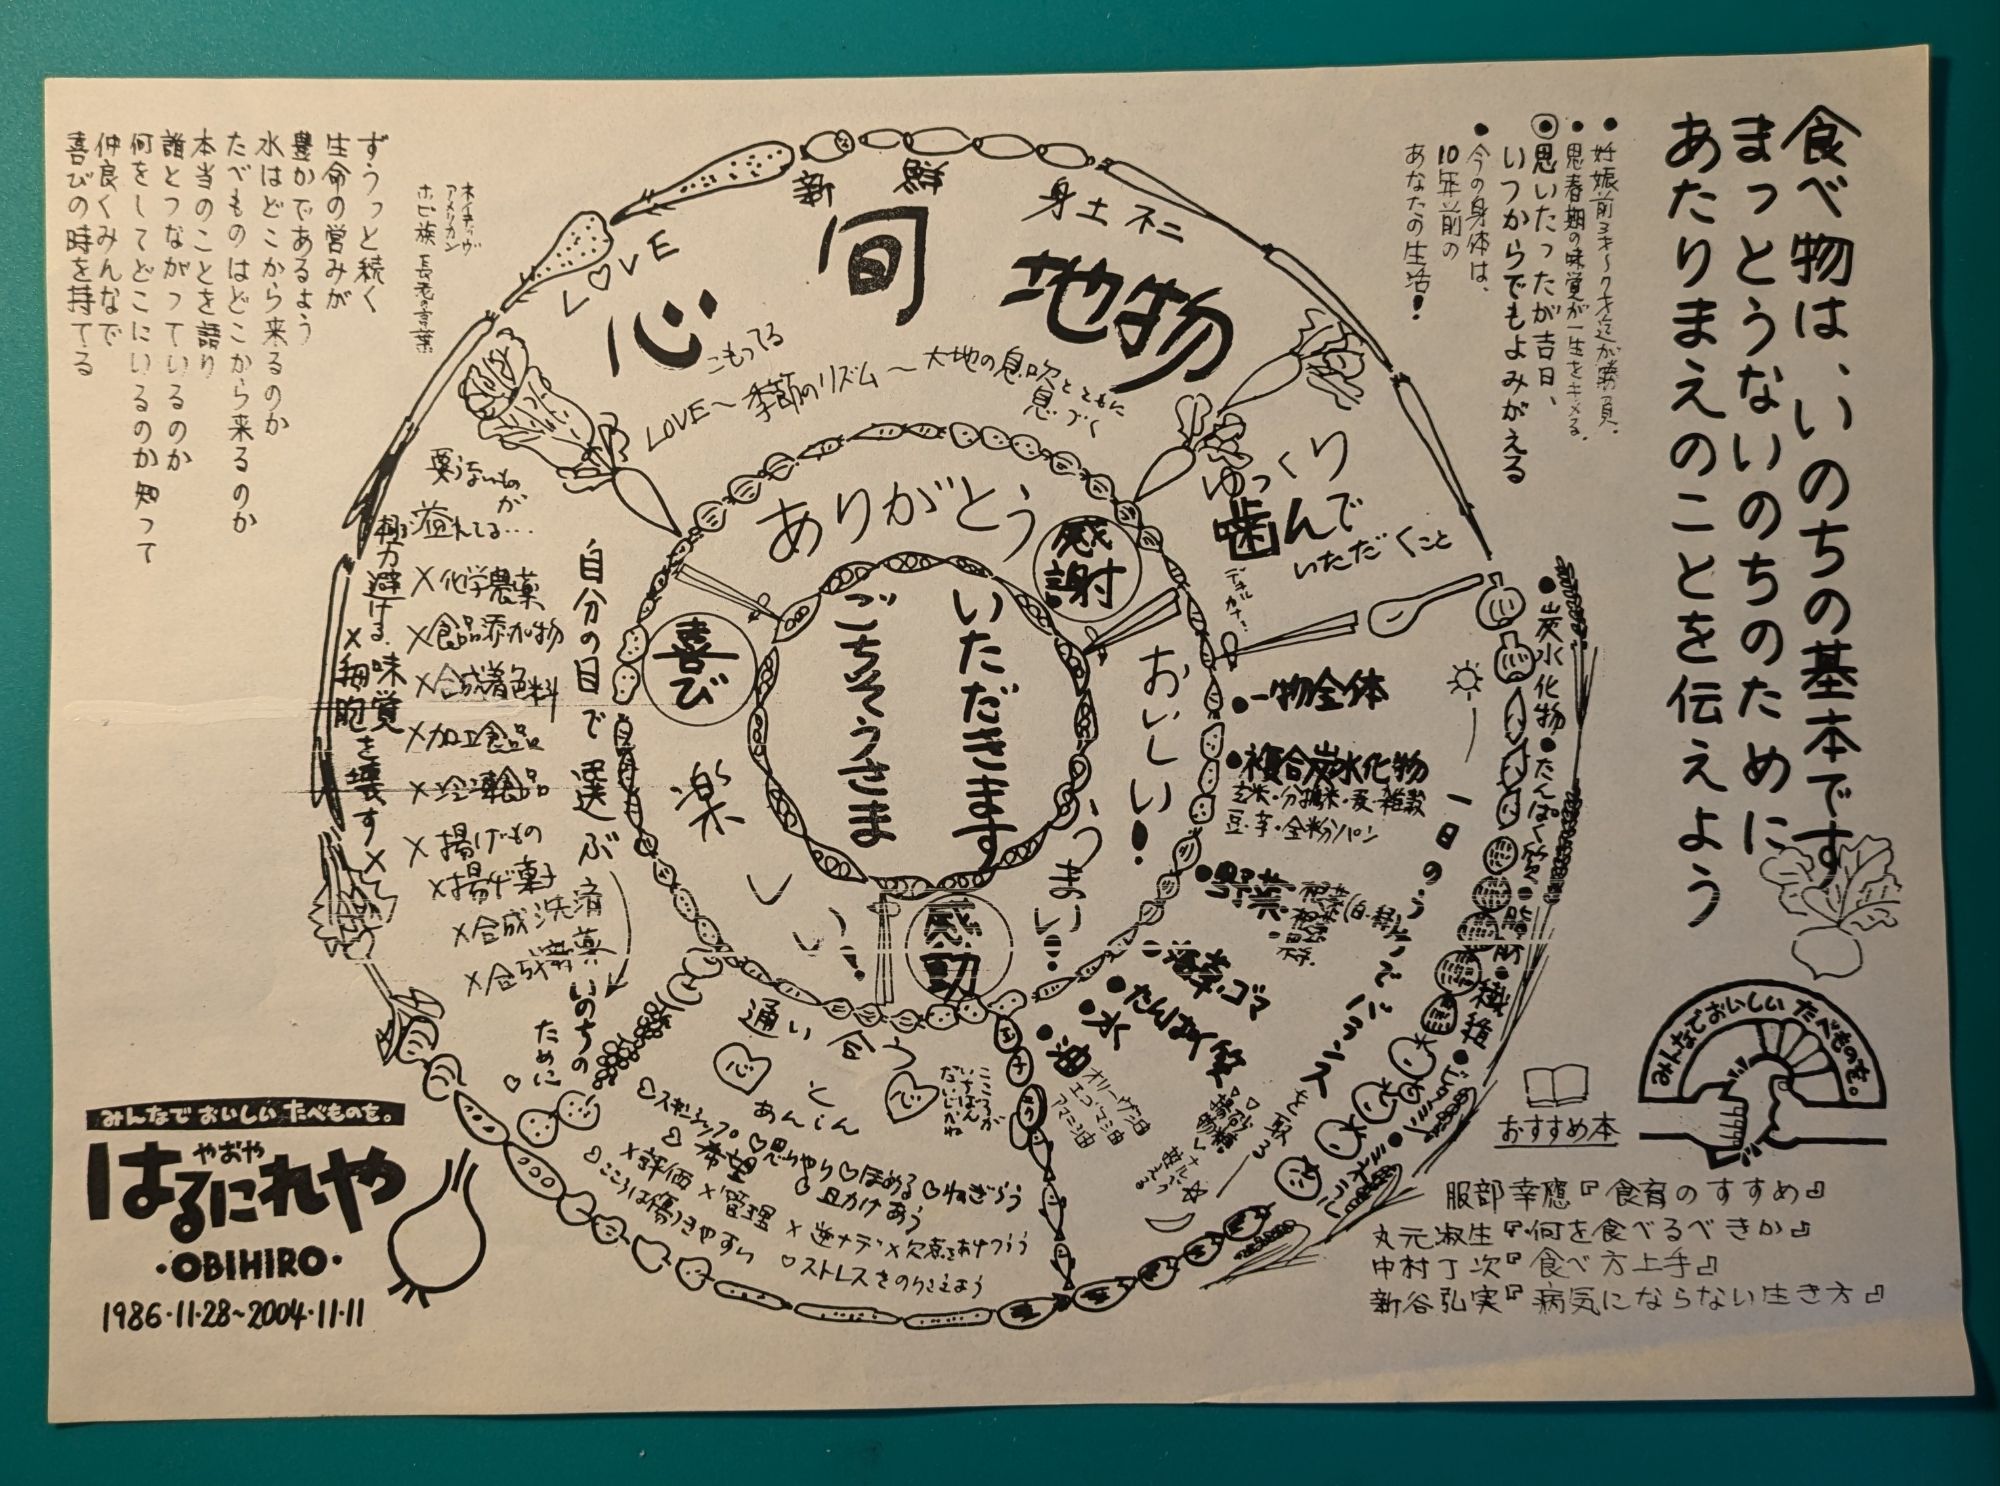 食べ物は、いのちの基本です
まっとうないのちのために
あたりまえのことを伝えよう
・妊娠前3才〜9才迄が勝負。
・思春期の味覚が一生をキメる。
思いたったが吉日、
いつからでもよみがえる
・今の身体は、
10年前の
あなたの生活!
新鮮
身土不二
旬
地物
LOVE
心
こもってる
LOVE〜季節のリズム〜大地の息吹とともに
息づく
ゆっくり
噛んで
いただくこと
ありがとう
感謝
おいしい!
うまい!
感動
楽しい!
喜び
いただきます
ごちそうさま
・一物全体
・複合炭水化物
玄米・分搗米・麦・雑穀
豆・芋・全粉パン
・野菜
・海草・ゴマ
・たんぱく質
・水
・油
オリーヴ油
エゴマ油
アマニ油
一日のうちでバランスを取る
・炭水化物・たんぱく質・脂肪・繊維
・ミネラル
要らないものが
溢れてる…
極力避ける
×味覚
×細胞を壊す×
×化学農薬
×食品添加物
×合成着色料
×加工食品
×冷凍食品
×揚げもの
×揚げ菓子
×合成洗済
×合成薬
自分の目で選ぶ
いのちの
ために
通い合う
心
心
としん
あんしん
こころが
いちばん
だいじかね
スキンシップ
思いやり
ほめる
ねぎらう
希望
×評価×管理×逆ナデ×欠点をあげつらう
こころは傷つきやすい
ストレスをのりこえよう
ネイティヴ
アメリカン
ホピ族 長老の言葉
ずうっと続く
生命の営みが
豊かであるよう
水はどこから来るのか
たべものはどこから来るのか
本当のことを語り
誰とつながっているのか
何をしてどこにいるのか知って
仲良くみんなで
喜びの時を持てる
みんなでおいしいたべものを。
おすすめ本
服部幸應『食育のすすめ』
丸元淑生『何を食べるべきか』
中村丁次『食べ方上手』
新谷弘実『病気にならない生き方』
みんなでおいしいたべものを。
やおや
はるにれや
・OBIHIRO・
1986・11・28〜2004・11・11